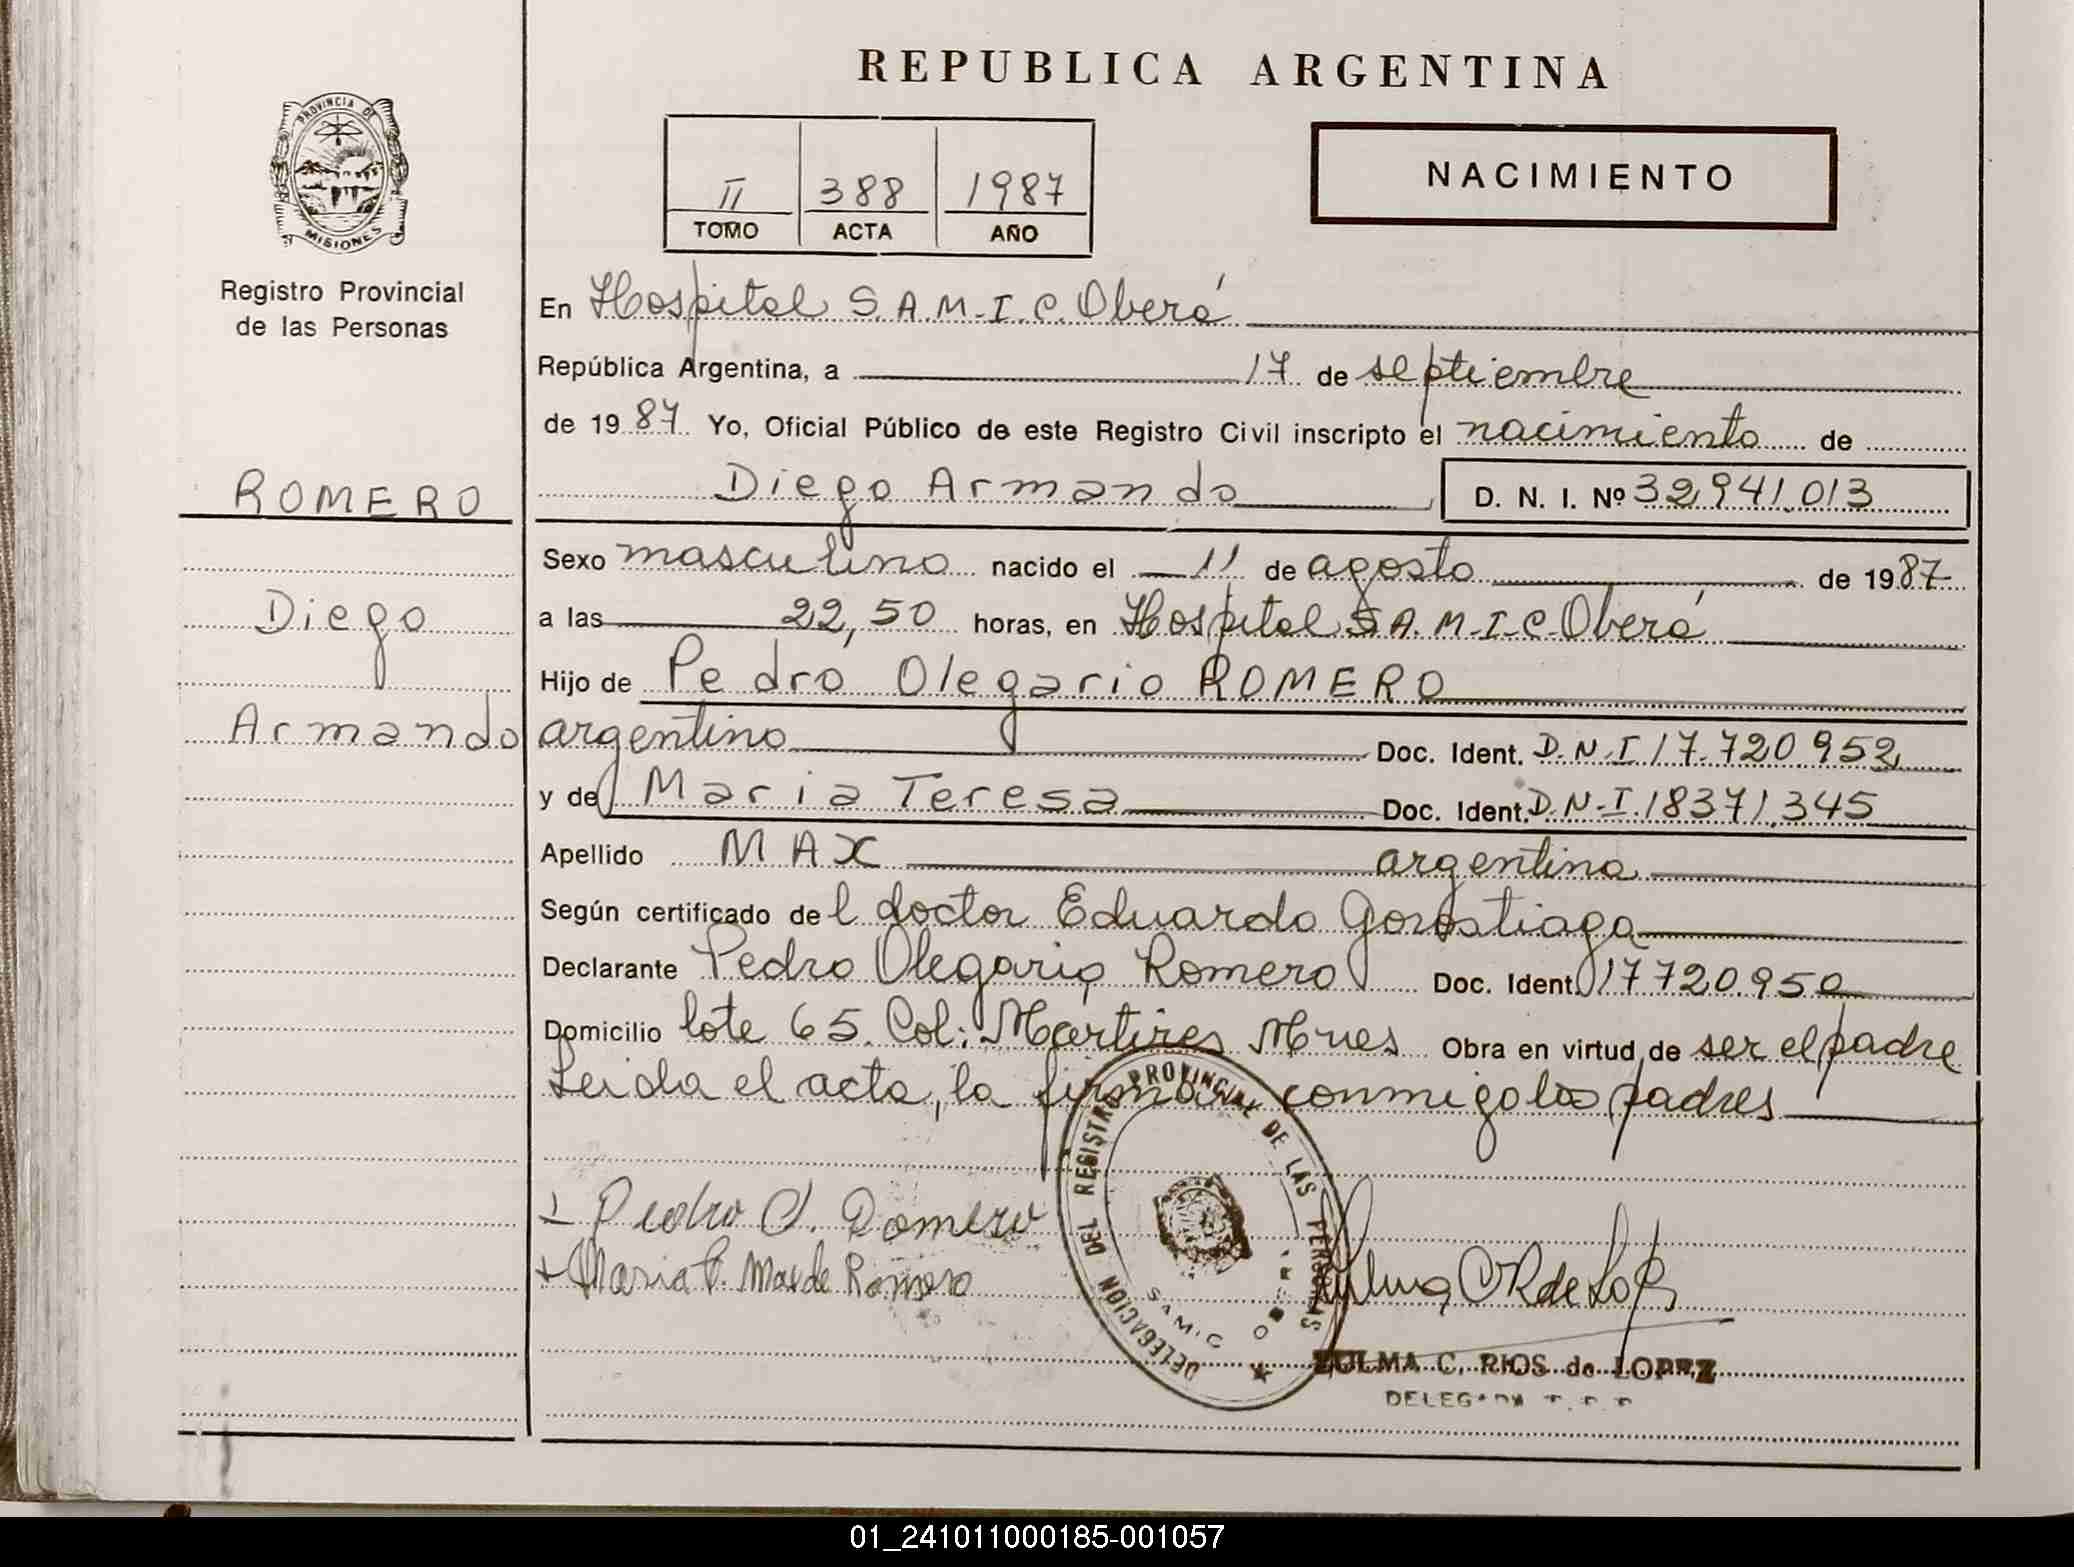 REPUBLICA ARGENTINA
PROVINCIA DE
MISIONES
Registro Provincial
de las Personas
II 388 1987
TOMO ACTA AÑO
NACIMIENTO
ROMERO
Diego
Armando
En Hospital S.A.M.I.C. Oberá
República Argentina, a 17 de septiembre
de 1987 Yo, Oficial Público de este Registro Civil inscripto el nacimiento de
Diego Armando D. N. I. Nº 32.941.013
Sexo masculino nacido el 11 de agosto de 1987
a las 22,50 horas, en Hospital S.A.M.I.C. Oberá
Hijo de Pedro Olegario ROMERO
argentino Doc. Ident. D.N.I 17.720.952
y de Maria Teresa Doc. Ident. D.N.I. 18371.345
Apellido MAX argentina
Según certificado del doctor Eduardo Gorostiaga
Declarante Pedro Olegario Romero Doc. Ident. 17720.952
Domicilio lote 65. Col: Mártires Mnes Obra en virtud de ser el padre
Leida el acta, la firman conmigo los padres
Pedro O. Romero
+ Maria T. Max de Romero
DELEGACION DEL REGISTRO PROVINCIAL DE LAS PERSONAS
SAMIC
Zulma C R de López
ZULMA C. RIOS de LOPEZ
DELEGADA
01_241011000185-001057